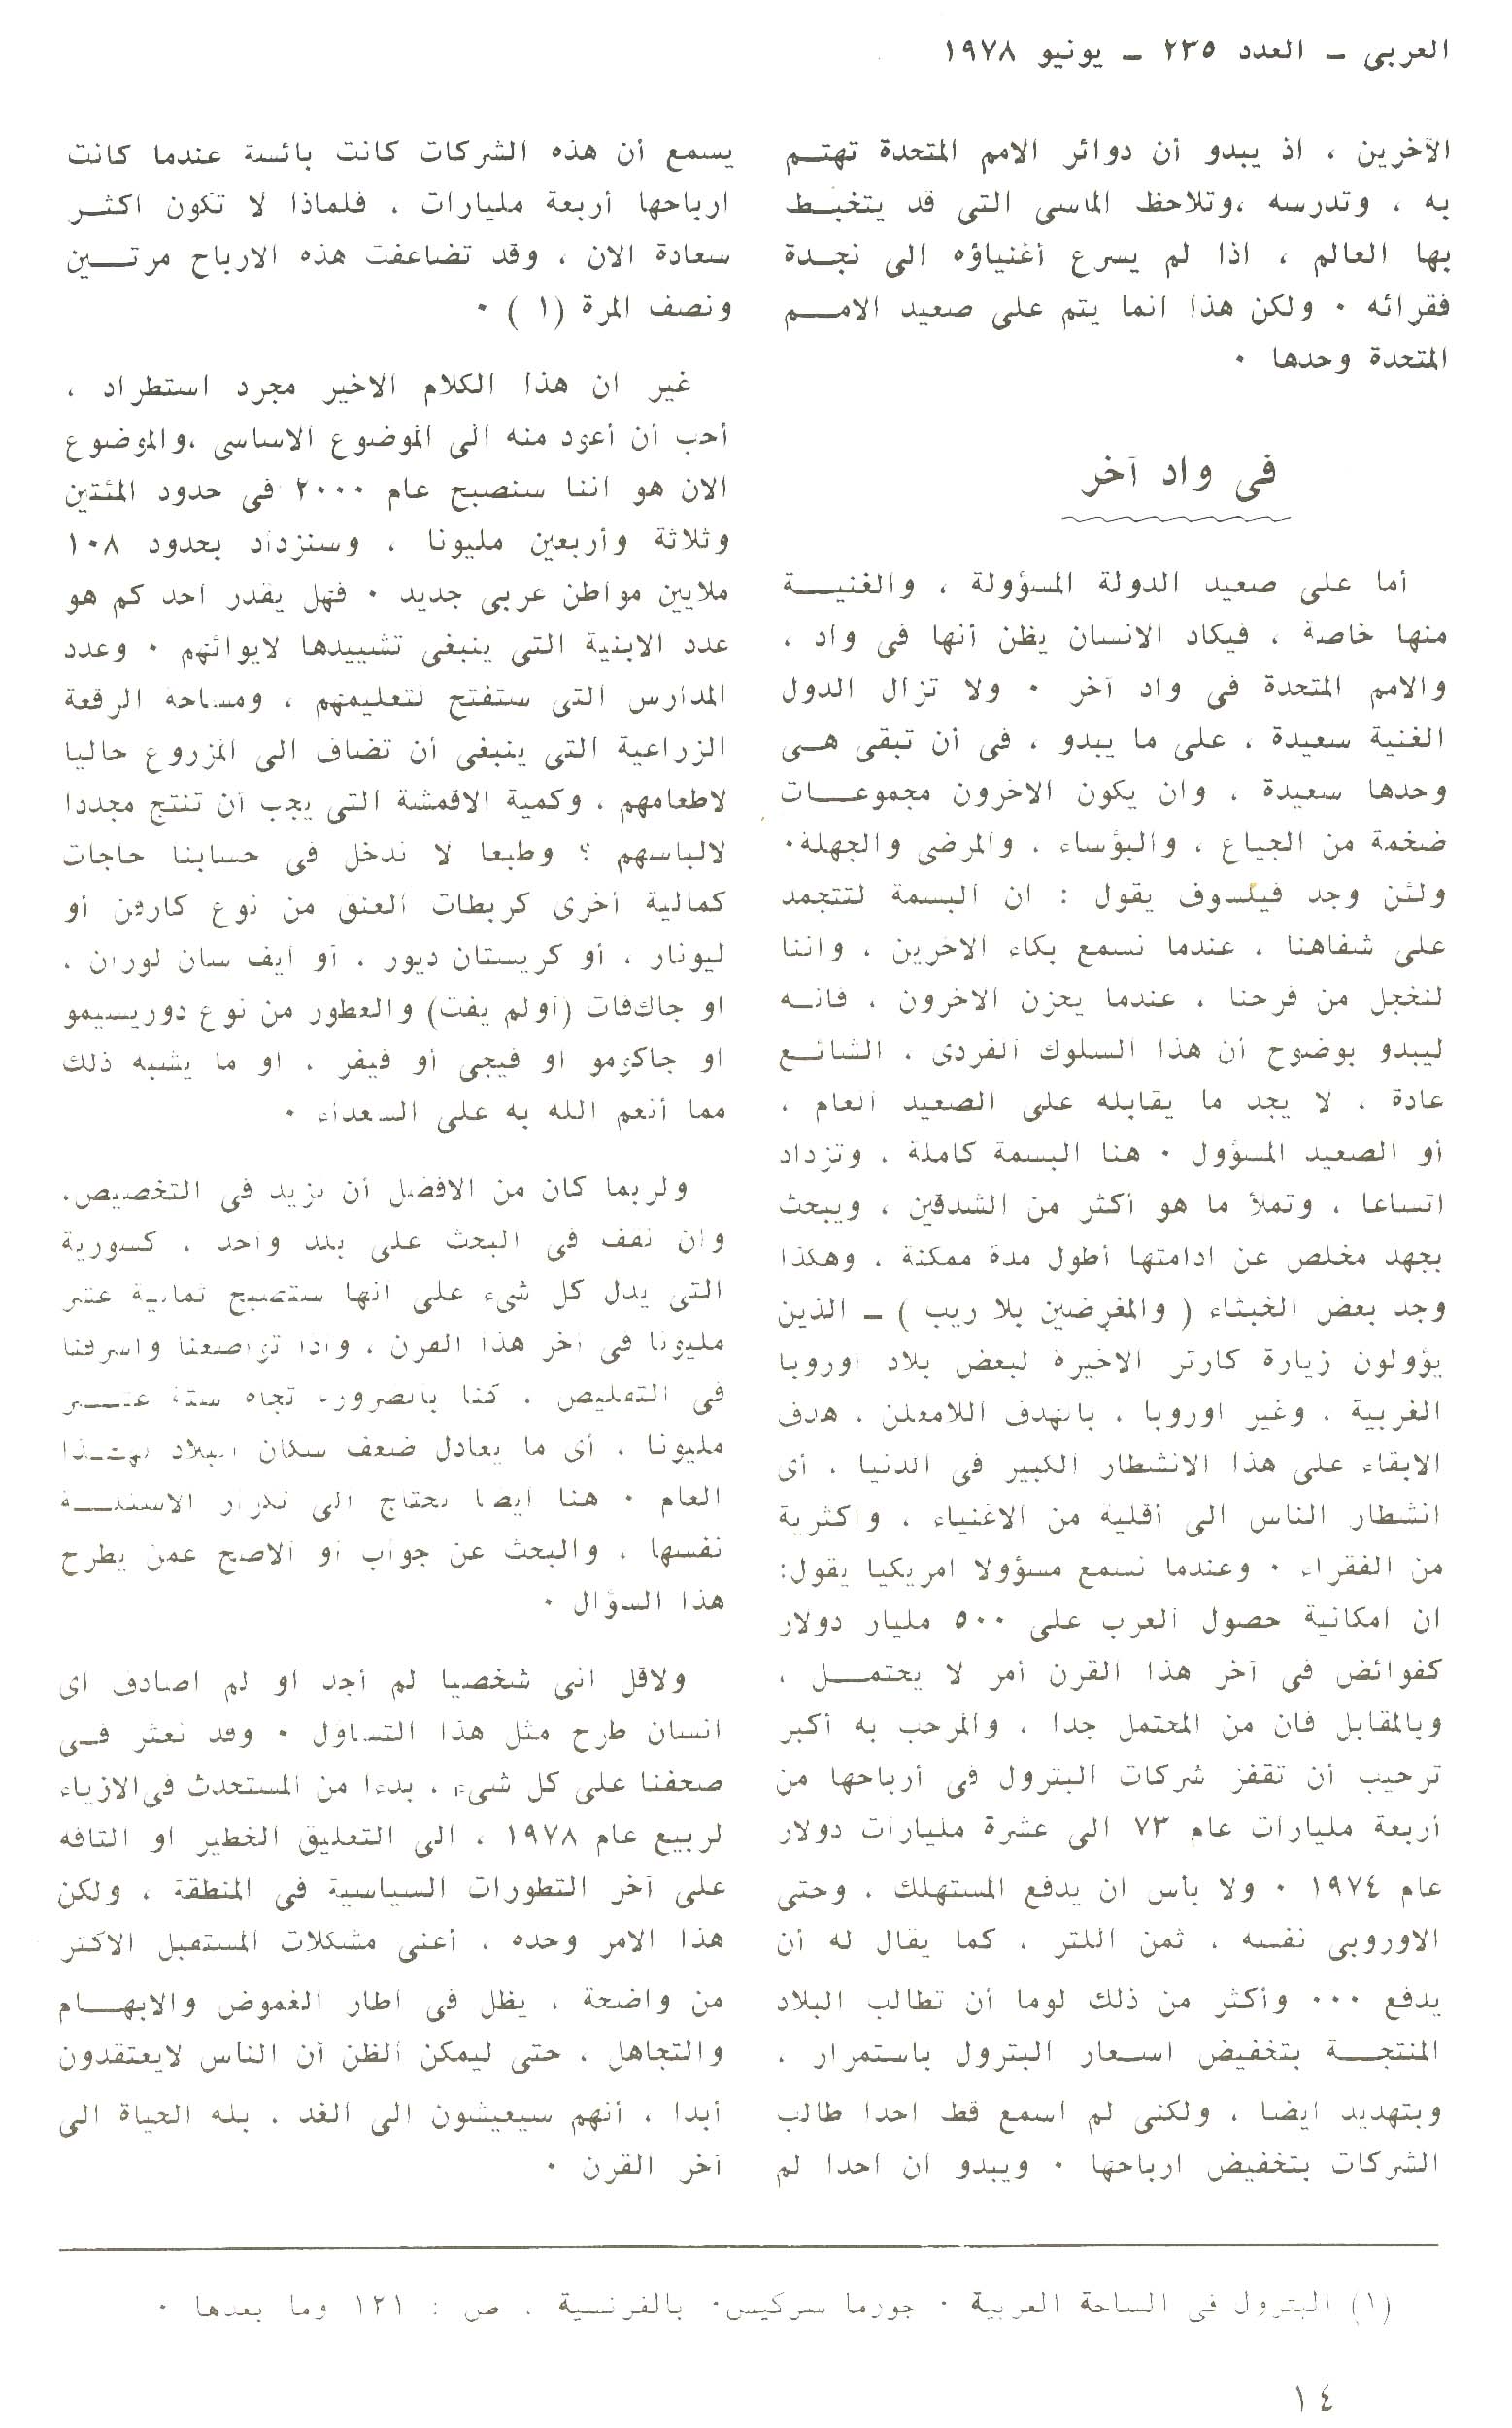 العربى – العدد ٢٣٥ – يونيو ١٩٧٨
الآخرين ، اذ يبدو أن دوائر الامم المتحدة تهتم
به ، وتدرسه ،وتلاحظ الماسى التى قد يتخبط
بها العالم ، اذا لم يسرع أغنياؤه الى نجدة
فقرائه ٠ ولكن هذا انما يتم على صعيد الامم
المتحدة وحدها ٠
فى واد آخر
أما على صعيد الدولة المسؤولة ، والغنية
منها خاصة ، فيكاد الانسان يظن أنها فى واد ،
والامم المتحدة فى واد آخر ٠ ولا تزال الدول
الغنية سعيدة ، على ما يبدو ، فى أن تبقى هى
وحدها سعيدة ، وان يكون الاخرون مجموعات
ضخمة من الجياع ، والبؤساء ، والمرضى والجهلة٠
ولئن وجد فيلسوف يقول : ان البسمة لتتجمد
على شفاهنا ، عندما نسمع بكاء الاخرين ، واننا
لنخجل من فرحنا ، عندما يحزن الاخرون ، فانه
ليبدو بوضوح أن هذا السلوك الفردى ، الشائع
عادة ، لا يجد ما يقابله على الصعيد العام ،
أو الصعيد المسؤول ٠ هنا البسمة كاملة ، وتزداد
اتساعا ، وتملأ ما هو أكثر من الشدقين ، ويبحث
بجهد مخلص عن ادامتها أطول مدة ممكنة ، وهكذا
وجد بعض الخبثاء ( والمغرضين بلا ريب ) – الذين
يؤولون زيارة كارتر الاخيرة لبعض بلاد اوروبا
الغربية ، وغير اوروبا ، بالهدف اللامعلن ، هدف
الابقاء على هذا الانشطار الكبير فى الدنيا ، أى
انشطار الناس الى أقلية من الاغنياء ، واكثرية
من الفقراء ٠ وعندما نسمع مسؤولا امريكيا يقول:
ان امكانية حصول العرب على ٥٠٠ مليار دولار
كفوائض فى آخر هذا القرن أمر لا يحتمل ،
وبالمقابل فان من المحتمل جدا ، والمرحب به أكبر
ترحيب أن تقفز شركات البترول فى أرباحها من
أربعة مليارات عام ٧٣ الى عشرة مليارات دولار
عام ١٩٧٤ ٠ ولا بأس ان يدفع المستهلك ، وحتى
الاوروبى نفسه ، ثمن اللتر ، كما يقال له أن
يدفع ٠٠٠ وأكثر من ذلك لوما أن تطالب البلاد
المنتجة بتخفيض اسعار البترول باستمرار ،
وبتهديد ايضا ، ولكنى لم اسمع قط احدا طالب
الشركات بتخفيض ارباحها ٠ ويبدو ان احدا لم
يسمع أن هذه الشركات كانت بائسة عندما كانت
ارباحها أربعة مليارات ، فلماذا لا تكون اكثر
سعادة الان ، وقد تضاعفت هذه الارباح مرتين
ونصف المرة (١ ) ٠
غير ان هذا الكلام الاخير مجرد استطراد ،
أحب أن أعود منه الى الموضوع الاساسى ،والموضوع
الان هو اننا سنصبح عام ٢٠٠٠ فى حدود المئتين
وثلاثة وأربعين مليونا ، وسنزداد بحدود ١٠٨
ملايين مواطن عربى جديد ٠ فهل يقدر احد كم هو
عدد الابنية التى ينبغى تشييدها لايوائهم ٠ وعدد
المدارس التى ستفتح لتعليمهم ، ومساحة الرقعة
الزراعية التى ينبغى أن تضاف الى المزروع حاليا
لاطعامهم ، وكمية الاقمشة التى يجب أن تنتج مجددا
لالباسهم ؟ وطبعا لا ندخل فى حسابنا حاجات
كمالية أخرى كربطات العنق من نوع كارفن أو
ليونار ، أو كريستان ديور ، أو ايف سان لوران ،
او جاك‌فات (أولم يفت) والعطور من نوع دوريسيمو
او جاكومو او فيجى أو فيفر ، او ما يشبه ذلك
مما أنعم الله به على السعداء ٠
ولربما كان من الافضل أن نزيد فى التخصيص،
وان نقف فى البحث على بلد واحد ، كسورية
التى يدل كل شىء على انها ستصبح ثمانية عشر
مليونا فى آخر هذا القرن ، واذا تواضعنا واسرفنا
فى التقليص ، كنا بالضرورة تجاه ستة عشر
مليونا ، أى ما يعادل ضعف سكان البلاد لهذا
العام ٠ هنا ايضا نحتاج الى تكرار الاسئلة
نفسها ، والبحث عن جواب أو الاصح عمن يطرح
هذا السؤال ٠
ولاقل انى شخصيا لم أجد او لم اصادف اى
انسان طرح مثل هذا التساؤل ٠ وقد نعثر فى
صحفنا على كل شىء ، بدءا من المستحدث فى الازياء
لربيع عام ١٩٧٨ ، الى التعليق الخطير او التافه
على آخر التطورات السياسية فى المنطقة ، ولكن
هذا الامر وحده ، أعنى مشكلات المستقبل الاكثر
من واضحة ، يظل فى اطار الغموض والابهام
والتجاهل ، حتى ليمكن الظن أن الناس لايعتقدون
أبدا ، أنهم سيعيشون الى الغد ، بله الحياة الى
آخر القرن ٠
(١) البترول فى الساحة العربية ٠ جورما سركيس٠ بالفرنسية ، ص : ١٢١ وما بعدها ٠
١٤